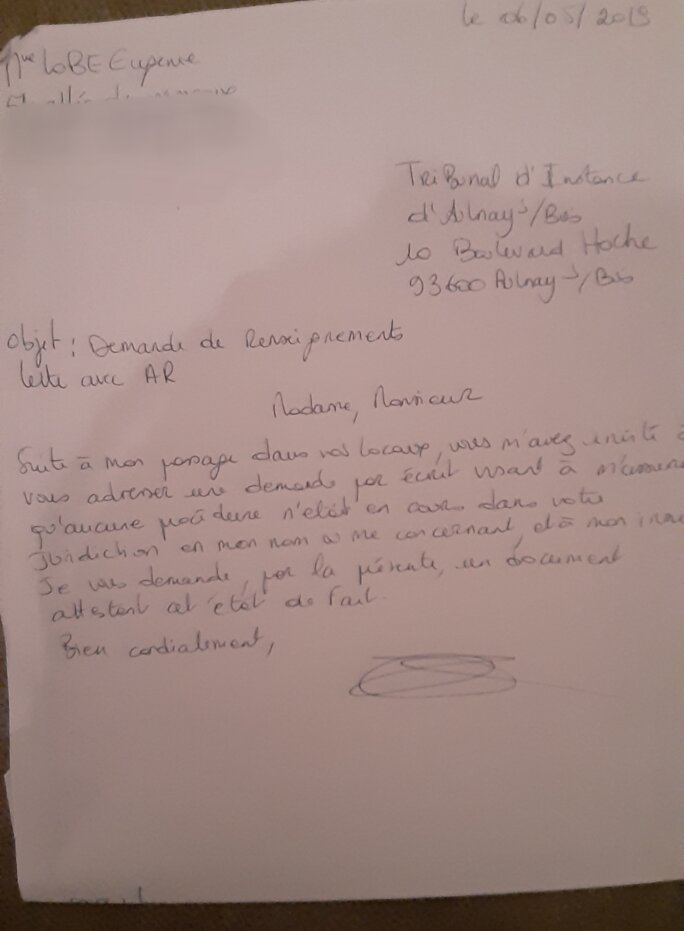 le 06/05/2019
Mme LOBE Eugenie
Tribunal d'Instance
d'Aulnay s/Bois
10 Boulevard Hoche
93600 Aulnay s/Bois
Objet : Demande de Renseignements
lettre avec AR
Madame, Monsieur
Suite à mon passage dans vos locaux, vous m'avez invité à
vous adresser une demande par écrit visant à m'assurer
qu'aucune procédure n'était en cours dans votre
juridiction en mon nom me concernant, et à mon
Je vous demande, par la présente, un document
attestant cet état de fait.
Bien cordialement,